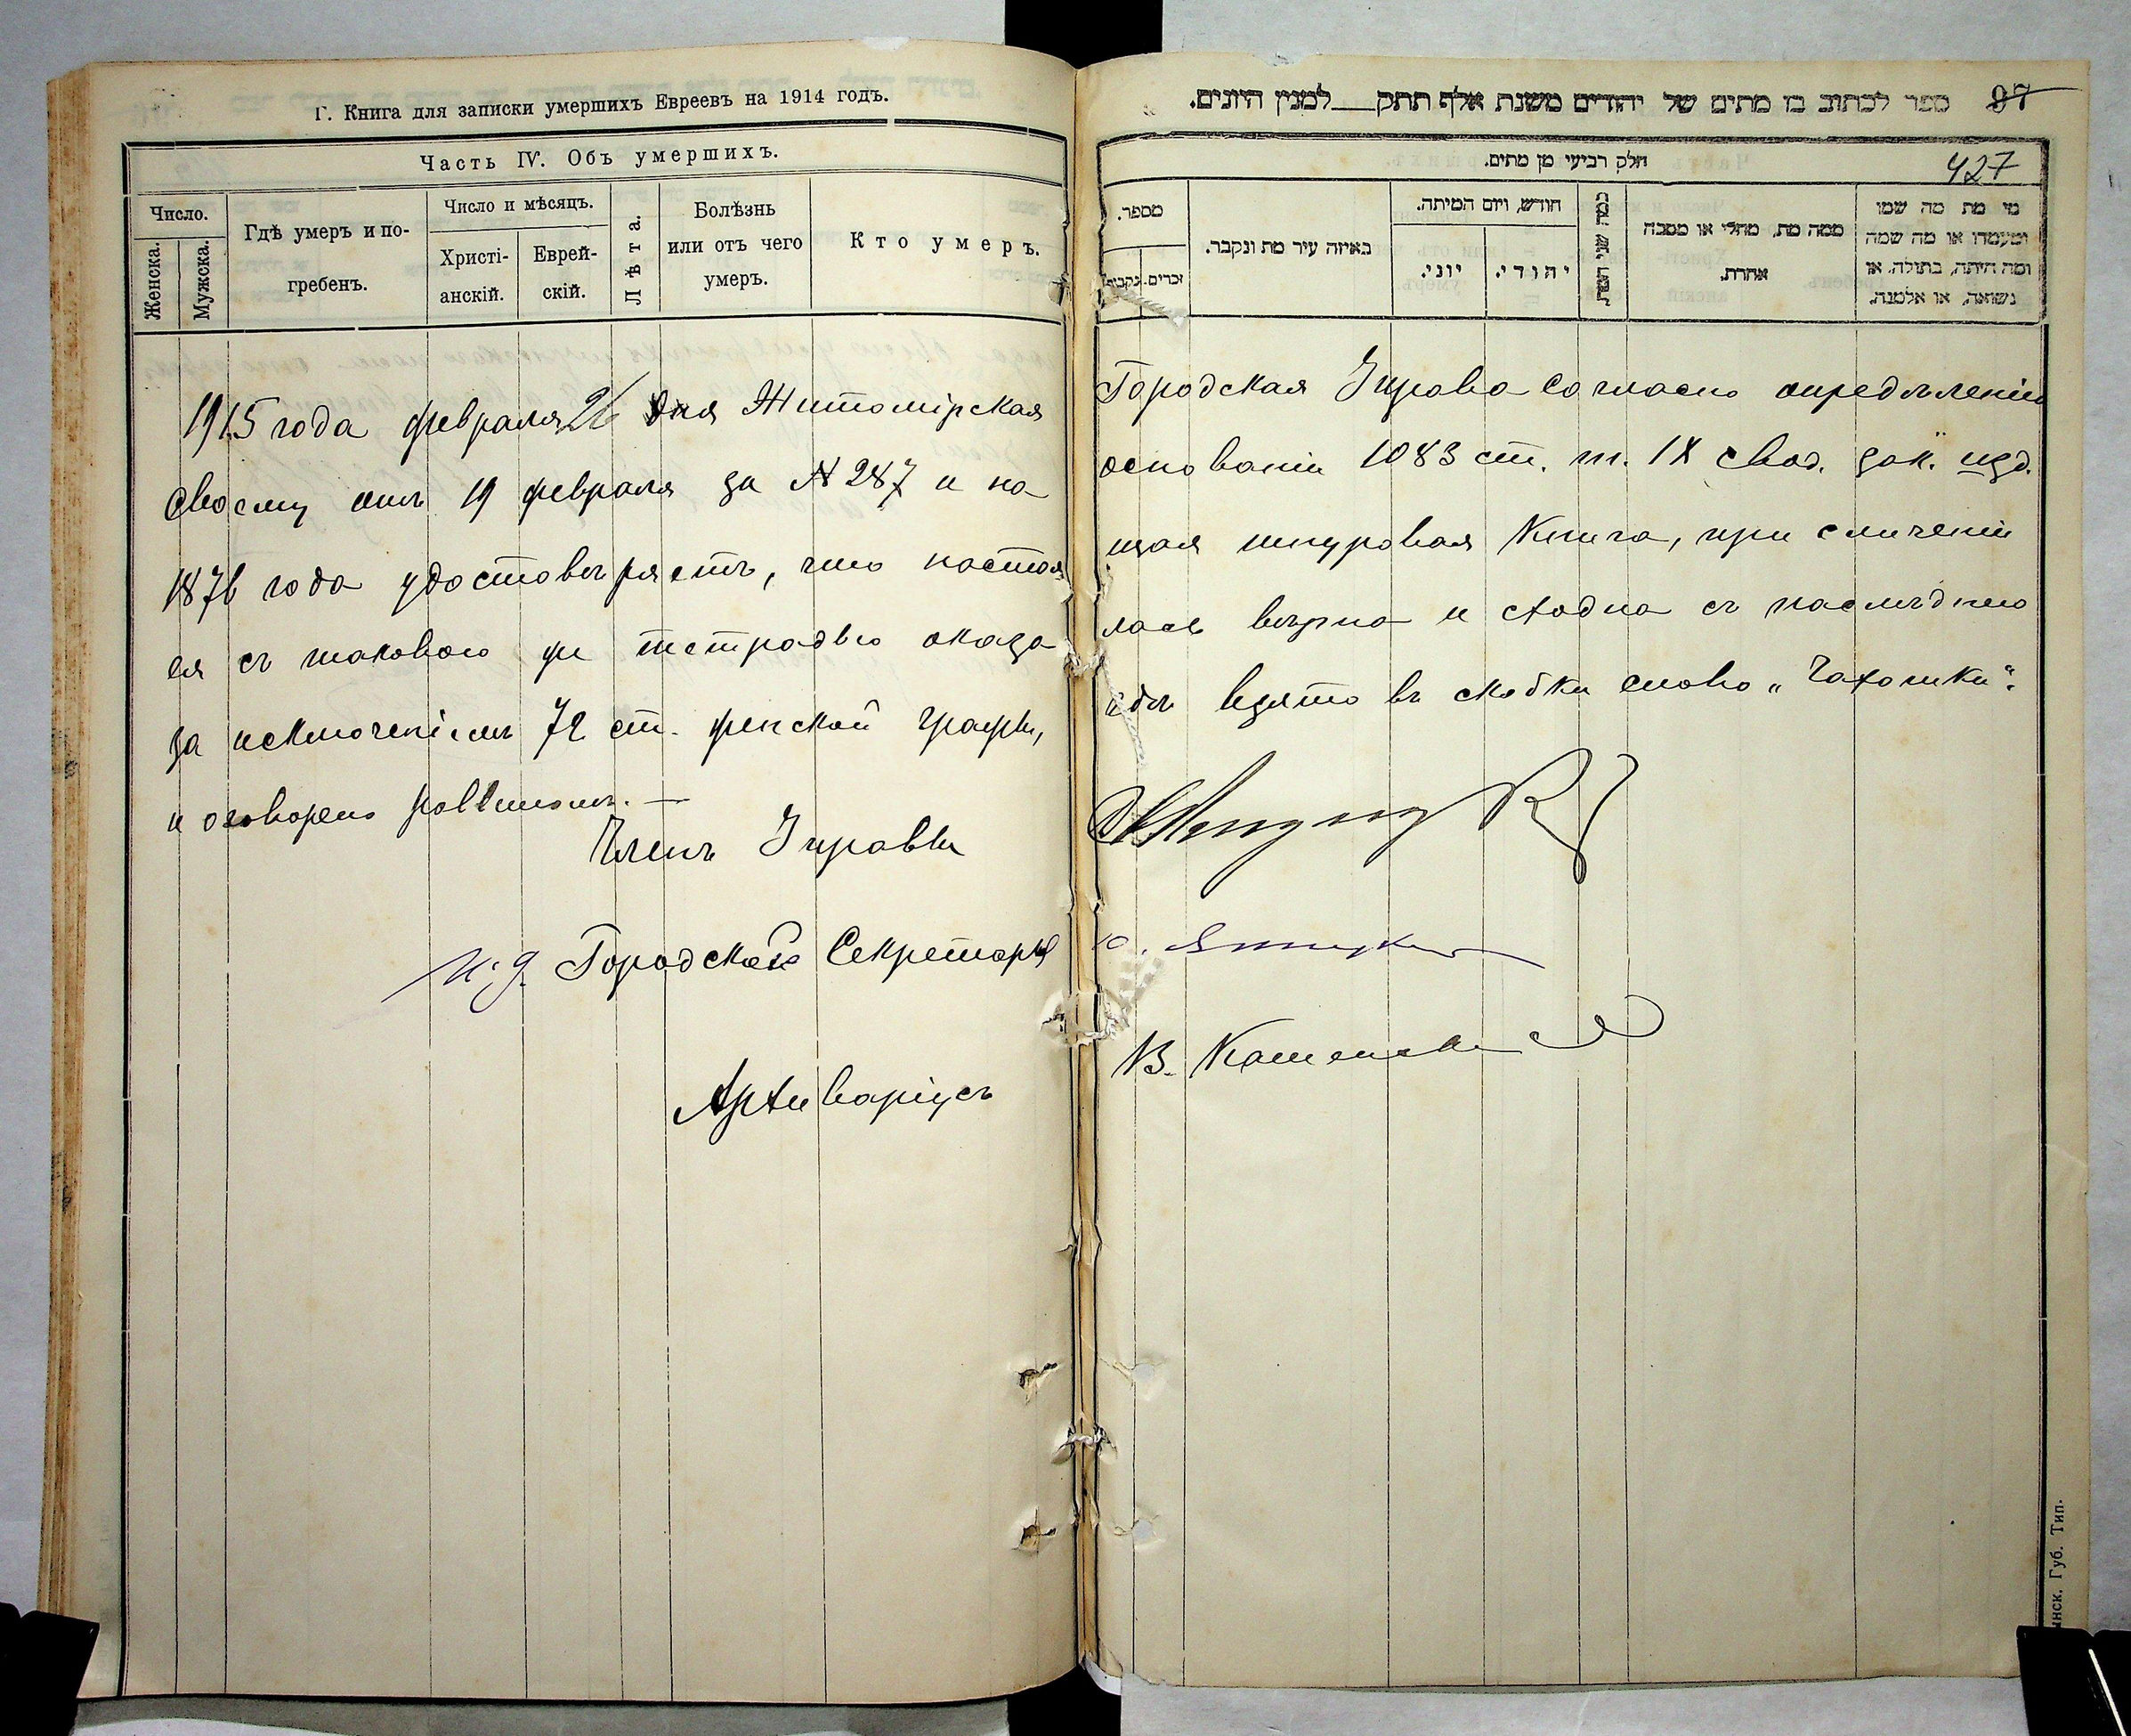 Г. Книга для записки умершихъ Евреевъ на 1914 годъ.
Часть IV. Объ умершихъ.
Число.
Женска.
Мужска.
Гдѣ умеръ и по-
гребенъ.
Число и мѣсяцъ.
Христі-
анскій.
Еврей-
скій.
Лѣта.
Болѣзнь
или отъ чего
умеръ.
Кто умеръ.
ספר לכתוב בו מתים של יהודים משנת אלף תתק למנין היונים.
97
חלק רביעי מן מתים.
427
מספר.
זכרים.
נקבות
באיזה עיר מת ונקבר.
חודש, ויום המיתה.
יוני.
יהודי.
כמה שני חייו.
ממה מת, מחלי או מסבה
אחרת.
מי מת מה שמו
ומעמדו או מה שמה
ומה היתה, בתולה, או
נשואה, או אלמנה.
1915 года февраля 26 дня Житомірская Городская Управа согласно опредѣленію
своему отъ 19 февраля за N 287 и на основаніи 1083 ст. т. IX свод. зак. изд.
1876 года удостовѣряетъ, что настоящая шнуровая книга, при сличеніи
ея съ таковою же тетрадью оказалась вѣрна и сходна съ послѣднею
за исключеніемъ 72 ст. женской графы, гдѣ взято въ скобки слово „Чахотки“.
и оговорено раввиномъ. —
Членъ Управы
И. д. Городского Секретаря
Архиваріусъ
В.
нск. Губ. Тип.